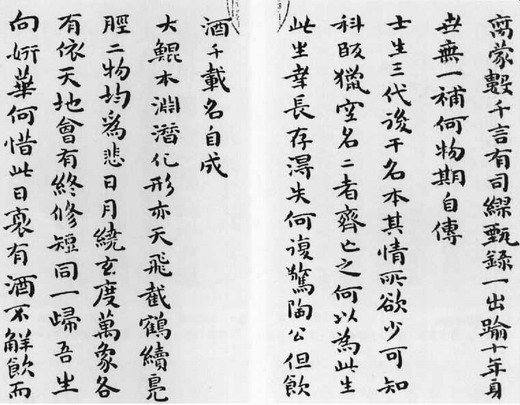 蒙數千言有司繆甄錄一出踰十年身
世無一補何物期自傳
士生三代後干名本其情所欲少可知
科獵空名二者齊亡之何以為此生
此生幸長存得失何復驚陶公但飲
酒千載名自成
大鯤本淵潛化形亦天飛截鶴續鳧
脛二物均為悲日月繞玄度萬象各
有依天地會有終修短同一歸吾生
向妍華何惜此日裒有酒不解飲而